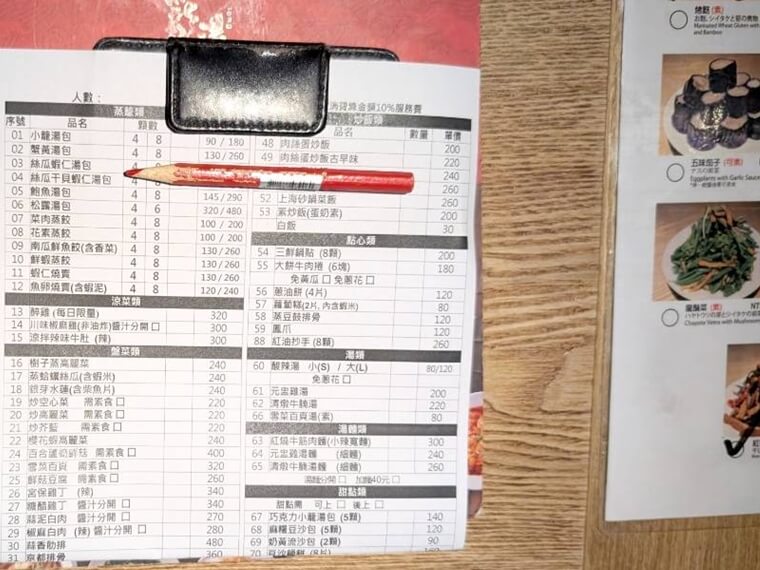 人數：
消費金額10%服務費
蒸籠類
序號 品名 顆數
01 小籠湯包 4 8 90 / 180
02 蟹黃湯包 4 8 130 / 260
03 絲瓜蝦仁湯包 4 8
04 絲瓜干貝蝦仁湯包 4 8
05 鮑魚湯包 4 8 145 / 290
06 松露湯包 4 6 320 / 480
07 菜肉蒸餃 4 8 100 / 200
08 花素蒸餃 4 8 100 / 200
09 南瓜鮮魚餃(含香菜) 4 8 130 / 260
10 鮮蝦蒸餃 4 8 130 / 260
11 蝦仁燒賣 4 8 130 / 260
12 魚卵燒賣(含蝦泥) 4 8 120 / 240
涼菜類
13 醉雞 (每日限量) 320
14 川味椒麻雞(非油炸)醬汁分開 □ 300
15 涼拌辣味牛肚 (辣) 300
盤菜類
16 樹子蒸高麗菜 240
17 蒸蛤蠣絲瓜(含蝦米) 240
18 銀芽水蓮(含柴魚片) 240
19 炒空心菜 需素食 □ 220
20 炒高麗菜 需素食 □ 220
21 炒芥藍 需素食 □ 220
22 櫻花蝦高麗菜 240
24 百合蘆筍鮮菇 需素食 □ 400
23 雪菜百頁 需素食 □ 320
25 鮮菇豆腐 需素食 □ 260
26 宮保雞丁 (辣) 340
27 糖醋雞丁 醬汁分開 □ 340
28 蒜泥白肉 醬汁分開 □ 270
29 椒麻白肉 (辣) 醬汁分開 □ 280
30 蒜香肋排 480
31 京都排骨 360
炒飯類
品名 數量 單價
48 肉絲蛋炒飯 200
49 肉絲蛋炒飯古早味 220
240
260
52 上海砂鍋菜飯 260
53 素炒飯(蛋奶素) 200
白飯 30
點心類
54 三鮮鍋貼 (8顆) 200
55 大餅牛肉捲 (6塊) 180
免黃瓜 □ 免蔥花 □
56 蔥油餅 (4片) 120
57 蘿蔔糕(2片, 內含蝦米) 80
58 蒸豆鼓排骨 120
59 鳳爪 120
88 紅油抄手 (8顆) 260
湯類
60 酸辣湯 小(S) / 大(L) 80/120
免蔥花 □
61 元盅雞湯 200
62 清燉牛腩湯 220
66 雪菜百頁湯(素) 80
湯麵類
63 紅燒牛筋肉麵(小辣寬麵) 300
64 元盅雞湯麵 (細麵) 240
65 清燉牛腩湯麵 (細麵) 260
湯麵分開 □ 加麵40元 □
甜點類
甜點需 可上 □ 後上 □
67 巧克力小籠湯包 (5顆) 140
68 麻糬豆沙包 (5顆) 120
69 奶黃流沙包 (2顆) 90
70 160
烤麩 (素)
お麩、シイタケと筍の煮物
Marinated Wheat Gluten with
and Bamboo
五味茄子 (可素)
ナスの前菜
Eggplants with Garlic Sauce
(素) NT
Chayote Vetra with Mushrooms
紅